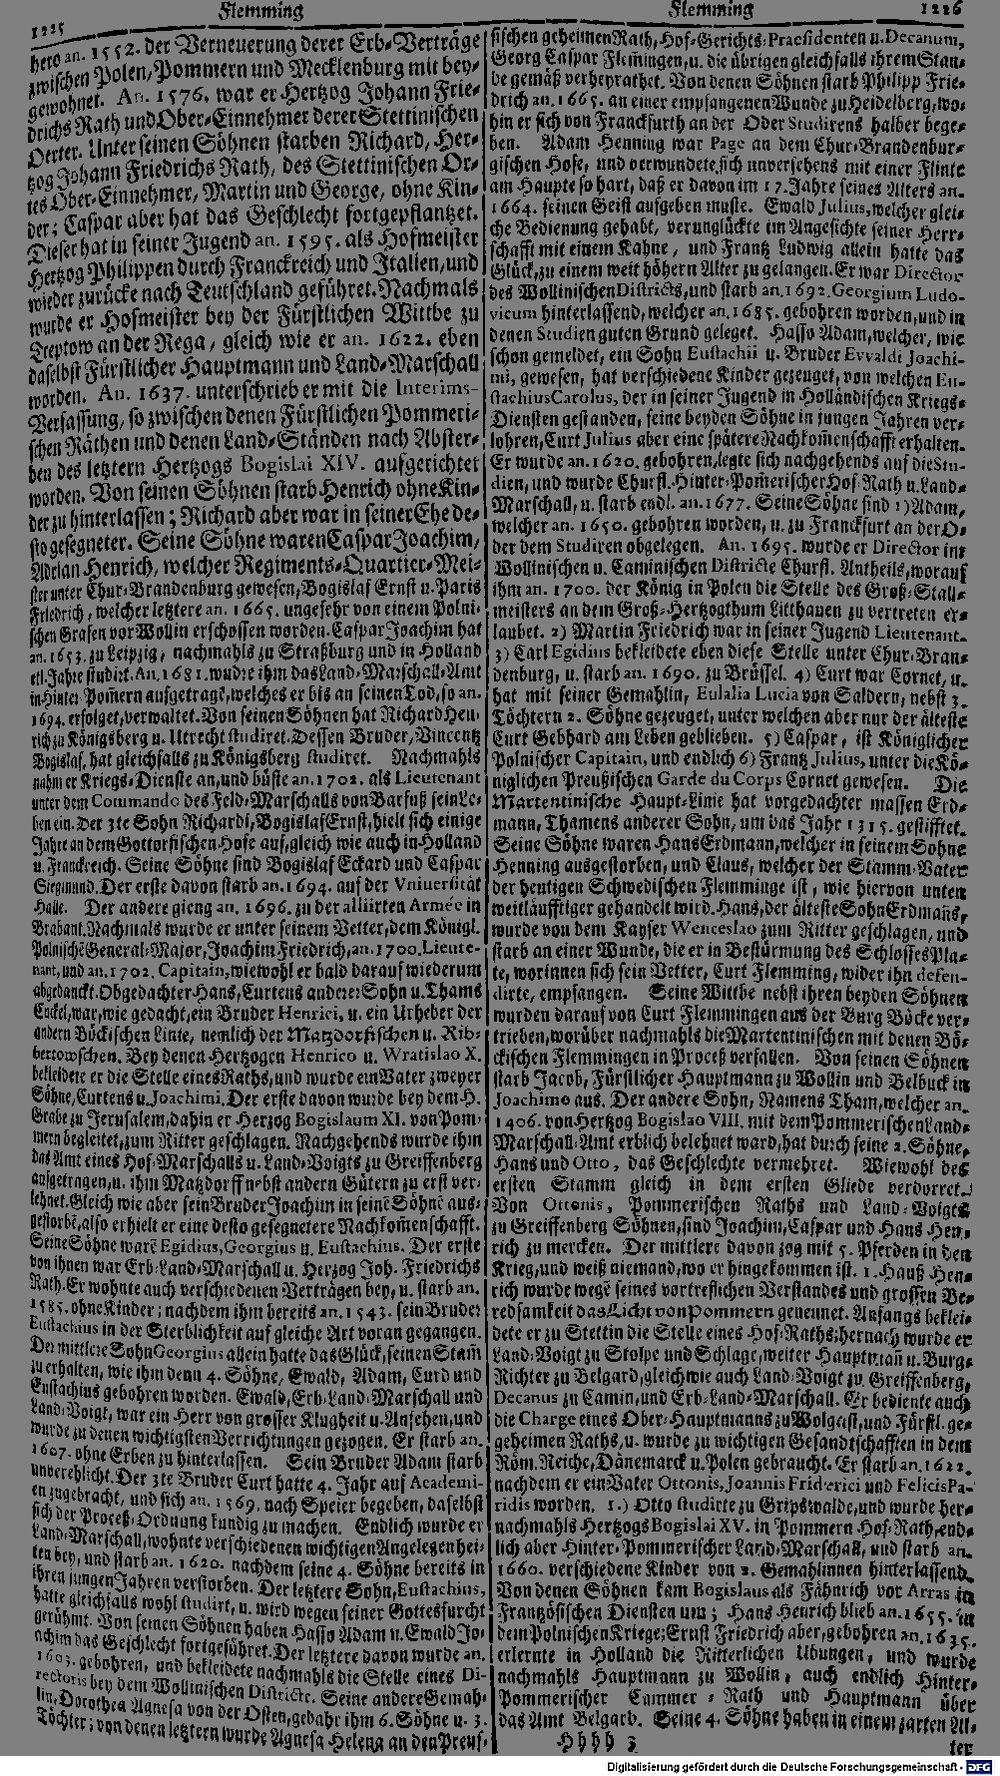 1225
Flemming
hero an. 1552. der Verneuerung derer Erb-Verträge
zwischen Polen, Pommern und Mecklenburg mit bey-
gewohnet. An. 1576. war er Hertzog Johann Frie-
drichs Rath und Ober-Einnehmer derer Stettinischen
Oerter. Unter seinen Söhnen starben Richard, Her-
tzog Johann Friedrichs Rath, des Stettinischen Or-
tes Ober-Einnehmer, Martin und George, ohne Kin-
der; Caspar aber hat das Geschlecht fortgepflantzet.
Dieser hat in seiner Jugend an. 1595. als Hofmeister
Hertzog Philippen durch Franckreich und Italien, und
wieder zurücke nach Teutschland geführet. Nachmals
wurde er Hofmeister bey der Fürstlichen Wittbe zu
Treptow an der Rega, gleich wie er an. 1622. eben
daselbst Fürstlicher Hauptmann und Land-Marschall
worden. An. 1637. unterschrieb er mit die Interims-
Verfassung, so zwischen denen Fürstlichen Pommeri-
schen Räthen und denen Land-Ständen nach Abster-
ben des letztern Hertzogs Bogislai XIV. aufgerichtet
worden. Von seinen Söhnen starb Henrich ohne Kin-
der zu hinterlassen; Richard aber war in seiner Ehe de-
sto gesegneter. Seine Söhne waren Caspar Joachim,
Adrian Henrich, welcher Regiments-Quartier-Mei-
ster unter Chur-Brandenburg gewesen, Bogislaf Ernst u. Paris
Friedrich, welcher letztere an. 1665. ungefehr von einem Polni-
schen Grafen vor Wollin erschossen worden. Caspar Joachim hat
an. 1653. zu Leipzig, nachmahls zu Straßburg und in Holland
etl. Jahre studirt. An. 1681. wurde ihm das Land-Marschall-Amt
in Hinter-Pom̃ern aufgetragē, welches er bis an seinen Tod, so an.
1694. erfolget, verwaltet. Von seinen Söhnen hat Richard Hen-
rich zu Königsberg u. Utrecht studiret. Dessen Bruder, Vincentz
Bogislaf, hat gleichfalls zu Königsberg studiret. Nachmahls
nahm er Kriegs-Dienste an, und büste an. 1702. als Lieutenant
unter dem Commando des Feld-Marschalls von Barfuß sein Le-
ben ein. Der 3te Sohn Richardi, Bogislaf Ernst, hielt sich einige
Jahre an dem Gottorfischen Hofe auf, gleich wie auch in Holland
u. Franckreich. Seine Söhne sind Bogislaf Eckard und Caspar
Siegmund. Der erste davon starb an. 1694. auf der Vniuersität
Halle. Der andere gieng an. 1696. zu der alliirten Armée in
Brabant. Nachmals wurde er unter seinem Vetter, dem Königl.
Polnische General-Major, Joachim Friedrich, an. 1700. Lieute-
nant, und an. 1702. Capitain, wiewohl er bald darauf wiederum
abgedanckt. Obgedachter Hans, Curtens anderer Sohn u. Thams
Enckel, war, wie gedacht, ein Bruder Henrici, u. ein Urheber der
andern Böckischen Linie, nemlich der Matzdorfischen u. Rib-
bertowschen. Bey denen Hertzogen Henrico u. Wratislao X.
bekleidete er die Stelle eines Raths, und wurde ein Vater zweyer
Söhne, Curtens u. Joachimi. Der erste davon wurde bey dem H.
Grabe zu Jerusalem, dahin er Herzog Bogislaum XI. von Pom-
mern begleitet, zum Ritter geschlagen. Nachgehends wurde ihm
das Amt eines Hof-Marschalls u. Land-Voigts zu Greiffenberg
aufgetragen, u. ihm Matzdorff nebst andern Gütern zu erst ver-
lehnet. Gleich wie aber sein Bruder Joachim in seinē Söhnē aus-
gestorbē, also erhielt er eine desto gesegnetere Nachkom̃enschafft.
Seine Söhne warē Egidius, Georgius u. Eustachius. Der erste
von ihnen war Erb-Land-Marschall u. Herzog Joh. Friedrichs
Rath. Er wohnte auch verschiedenen Verträgen bey, u. starb an.
1585. ohne Kinder; nachdem ihm bereits an. 1543. sein Bruder
Eustachius in der Sterblichkeit auf gleiche Art voran gegangen.
Der mittlere Sohn Georgius allein hatte das Glück, seinen Stam̃
zu erhalten, wie ihm denn 4. Söhne, Ewald, Adam, Curd und
Eustachius gebohren worden. Ewald, Erb-Land-Marschall und
Land-Voigt, war ein Herr von grosser Klugheit u. Ansehen, und
wurde zu denen wichtigsten Verrichtungen gezogen. Er starb an.
1607. ohne Erben zu hinterlassen. Sein Bruder Adam starb
unverehlicht. Der 3te Bruder Curt hatte 4. Jahr auf Academi-
en zugebracht, und sich an. 1569. nach Speier begeben, daselbst
sich der Proceß-Ordnung kundig zu machen. Endlich wurde er
Land-Marschall, wohnte verschiedenen wichtigen Angelegenhei-
ten bey, und starb an. 1620. nachdem seine 4. Söhne bereits in
ihren jungen Jahren verstorben. Der letztere Sohn, Eustachius,
hatte gleichfalls wohl studirt, u. wird wegen seiner Gottesfurcht
gerühmt. Von seinen Söhnen haben Hasso Adam u. Ewald Jo-
achim das Geschlecht fortgeführet. Der letztere davon wurde an.
1603. gebohren, und bekleidete nachmahls die Stelle eines Di-
rectoris bey dem Wollinischen Districte. Seine andere Gemah-
lin, Dorothea Agnesa von der Osten, gebahr ihm 6. Söhne u. 3.
Töchter; von denen letztern wurde Agnesa Helena an den Preus-
Flemming
1226
sischen geheimen Rath, Hof-Gerichts-Praesidenten u. Decanum,
Georg Caspar Flemingen, u. die übrigen gleichfalls ihrem Stan-
be gemäß verheyrathet. Von denen Söhnen starb Philipp Frie-
drich an. 1665. an einer empfangenen Wunde zu Heidelberg, wo-
hin er sich von Franckfurth an der Oder Studirens halber bege-
ben. Adam Henning war Page an dem Chur-Brandenbur-
gischen Hofe, und verwundete sich unversehens mit einer Flinte
am Haupte so hart, daß er davon im 17. Jahre seines Alters an.
1664. seinen Geist aufgeben muste. Ewald Julius, welcher glei-
che Bedienung gehabt, verunglückte im Angesichte seiner Herr-
schafft mit einem Kahne, und Frantz Ludwig allein hatte das
Glück, zu einem weit höhern Alter zu gelangen. Er war Director
des Wollinischen Districts, und starb an. 1692. Georgium Ludo-
vicum hinterlassend, welcher an. 1685. gebohren worden, und in
denen Studien guten Grund geleget. Hasso Adam, welcher, wie
schon gemeldet, ein Sohn Eustachii u. Bruder Evvaldi Joachi-
mi, gewesen, hat verschiedene Kinder gezeuget, von welchen Eu-
stachius Carolus, der in seiner Jugend in Holländischen Kriegs-
Diensten gestanden, seine beyden Söhne in jungen Jahren ver-
lohren, Curt Julius aber eine spätere Nachkom̃enschafft erhalten.
Er wurde an. 1620. gebohren, legte sich nachgehends auf die Stu-
dien, und wurde Churfl. Hinter-Pom̃erischer Hof-Rath u. Land-
Marschall, u. starb endl. an. 1677. Seine Söhne sind 1) Adam,
welcher an. 1650. gebohren worden, u. zu Franckfurt an der O-
der dem Studiren obgelegen. An. 1695. wurde er Director im
Wollinischen u. Caminischen Districte Churfl. Antheils, worauf
ihm an. 1700. der König in Polen die Stelle des Groß-Stall-
meisters an dem Groß-Hertzogthum Litthauen zu vertreten er-
laubet. 2) Martin Friedrich war in seiner Jugend Lieutenant.
3) Carl Egidius bekleidete eben diese Stelle unter Chur-Bran-
denburg, u. starb an. 1690. zu Brüssel. 4) Curt war Cornet, u.
hat mit seiner Gemahlin, Eulalia Lucia von Saldern, nebst 3.
Töchtern 2. Söhne gezeuget, unter welchen aber nur der älteste
Curt Gebhard am Leben geblieben. 5) Caspar, ist Königlicher
Polnischer Capitain, und endlich 6) Frantz Julius, unter die Kö-
niglichen Preußischen Garde du Corps Cornet gewesen. Die
Martentinische Haupt-Linie hat vorgedachter massen Erd-
mann, Thamens anderer Sohn, um das Jahr 1315. gestifftet.
Seine Söhne waren Hans Erdmann, welcher in seinem Sohne
Henning ausgestorben, und Claus, welcher der Stamm-Vater
der heutigen Schwedischen Flemminge ist, wie hiervon unten
weitläufftiger gehandelt wird. Hans, der älteste Sohn Erdmañs,
wurde von dem Kayser Wenceslao zum Ritter geschlagen, und
starb an einer Wunde, die er in Bestürmung des Schlosses Pla-
te, worinnen sich sein Vetter, Curt Flemming, wider ihn defen-
dirte, empfangen. Seine Wittbe nebst ihren beyden Söhnen
wurden darauf von Curt Flemmingen aus der Burg Böcke ver-
trieben, worüber nachmahls die Martentinischen mit denen Bö-
ckischen Flemmingen in Proceß verfallen. Von seinen Söhnen
starb Jacob, Fürstlicher Hauptmann zu Wollin und Belbuck in
Joachimo aus. Der andere Sohn, Namens Tham, welcher an.
1406. von Hertzog Bogislao VIII. mit dem Pommerischen Land-
Marschall-Amt erblich belehnet ward, hat durch seine 2. Söhne,
Hans und Otto, das Geschlechte vermehret. Wiewohl des
ersten Stamm gleich in dem ersten Gliede verdorret.
Von Ottonis, Pommerischen Raths und Land-Voigts
zu Greiffenberg Söhnen, sind Joachim, Caspar und Hans Hen-
rich zu mercken. Der mittlere davon zog mit 5. Pferden in den
Krieg, und weiß niemand, wo er hingekommen ist. 1. Hauß Hen-
rich wurde wegē seines vortreflichen Verstandes und grossen Be-
redsamkeit das Licht von Pommern genennet. Anfangs beklei-
dete er zu Stettin die Stelle eines Hof-Raths; hernach wurde er
Land-Voigt zu Stolpe und Schlage, weiter Hauptmañ u. Burg-
Richter zu Belgard, gleich wie auch Land-Voigt zu Greiffenberg,
Decanus zu Camin, und Erb-Land-Marschall. Er bediente auch
die Charge eines Ober-Hauptmanns zu Wolgast, und Fürstl. ge-
geheimen Raths, u. wurde zu wichtigen Gesandtschafften in dem
Röm. Reiche, Dänemarck u. Polen gebraucht. Er starb an. 1622.
nachdem er ein Vater Ottonis, Joannis Friderici und Felicis Pa-
ridis worden. 1.) Otto studirte zu Gripswalde, und wurde her-
nachmahls Hertzogs Bogislai XV. in Pommern Hof-Rath, end-
lich aber Hinter-Pommerischer Land-Marschall, und starb an.
1660. verschiedene Kinder von 2. Gemahlinnen hinterlassend.
Von denen Söhnen kam Bogislaus als Fähnrich vor Arras in
Frantzösischen Diensten um; Hans Henrich blieb an. 1655. in
dem Polnischen Kriege; Ernst Friedrich aber, gebohren an. 1635.
erlernte in Holland die Ritterlichen Übungen, und wurde
nachmahls Hauptmann zu Wollin, auch endlich Hinter-
Pommerischer Cammer-Rath und Hauptmann über
das Amt Belgard. Seine 4. Söhne haben in einem zarten Al-
Hhhh 3
ter
Digitalisierung gefördert durch die Deutsche Forschungsgemeinschaft - DFG